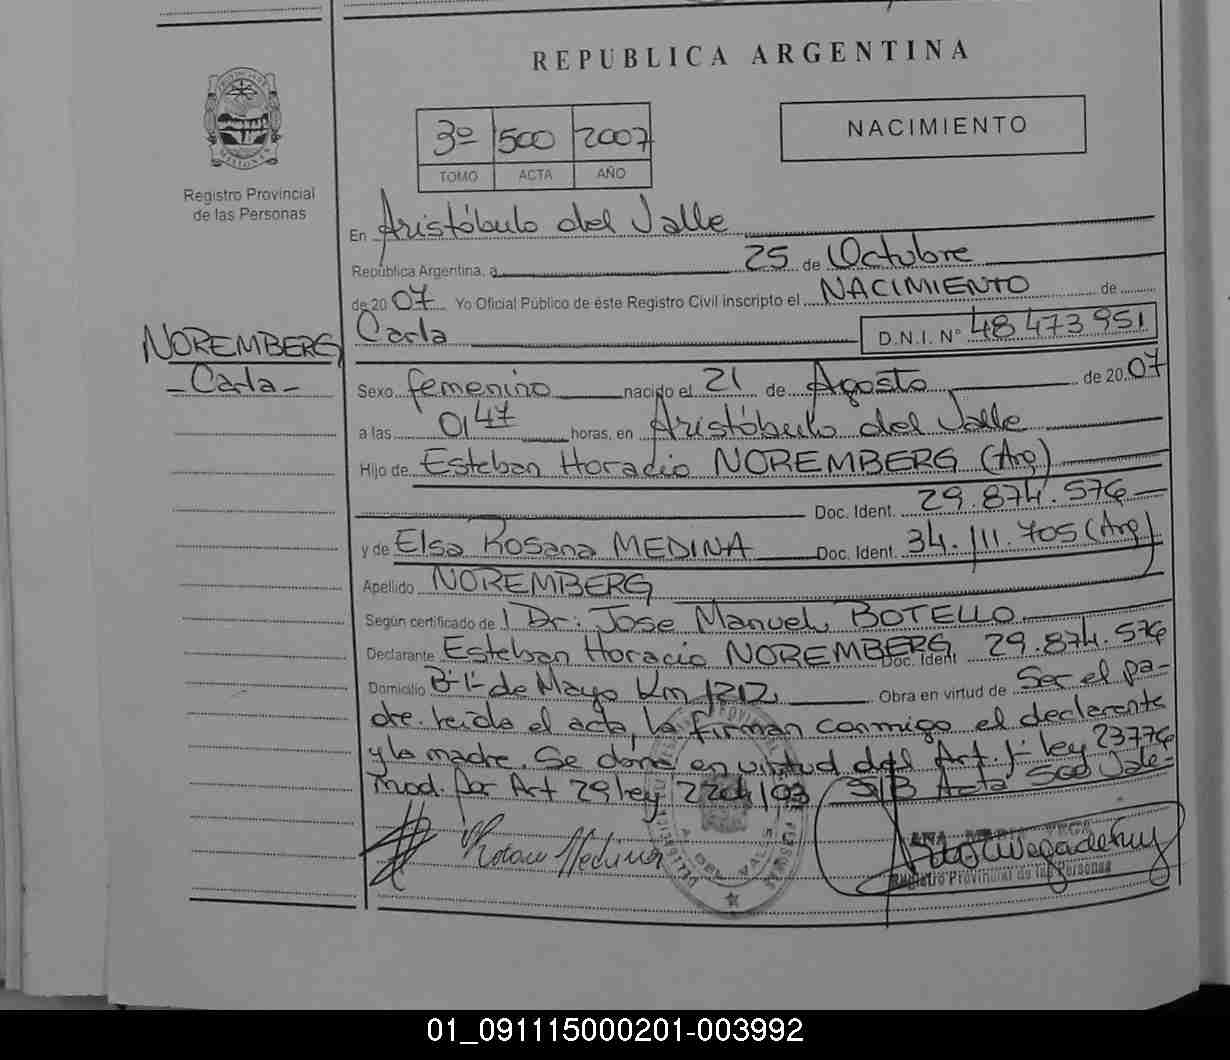 REPUBLICA ARGENTINA
3º 500 2007
TOMO ACTA AÑO
NACIMIENTO
Registro Provincial
de las Personas
En Aristóbulo del Valle
República Argentina, a 25 de Octubre
de 20 07 Yo Oficial Público de éste Registro Civil inscripto el NACIMIENTO de
Carla D.N.I. Nº 48 473 951
NOREMBERG
- Carla -
Sexo femenino nacido el 21 de Agosto de 20 07
a las 0147 horas, en Aristóbulo del Valle
Hijo de Esteban Horacio NOREMBERG (Arg)
Doc. Ident. 29.874.576
y de Elsa Rosana MEDINA Doc. Ident. 34.111.705 (Arg)
Apellido NOREMBERG
Según certificado de Dr: Jose Manuel BOTELLO
Declarante Esteban Horacio NOREMBERG Doc. Ident 29.874.576
Domicilio Bº 1º de Mayo Km 1212 Obra en virtud de Ser el pa-
dre. leída el acta, la firman conmigo el declarante
y la madre. Se dona en virtud del Art. 1º ley 23776
mod. por Art 29 ley S/B Acta 500 Vale-
Rosana Medina
ANA MARIA VEGA
Registro Provincial de las Personas
01_091115000201-003992